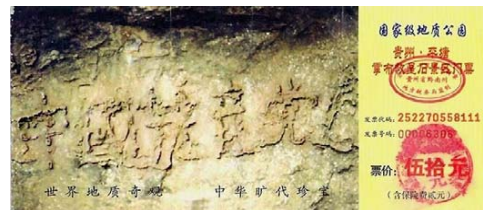 世界地质奇观 中华旷代珍宝
国家级地质公园
贵州·平塘
掌布藏字石景区门票
贵州省黔南州
发票代码: 252270558111
发票号码:
票价: 伍拾元
(含保险费贰元)